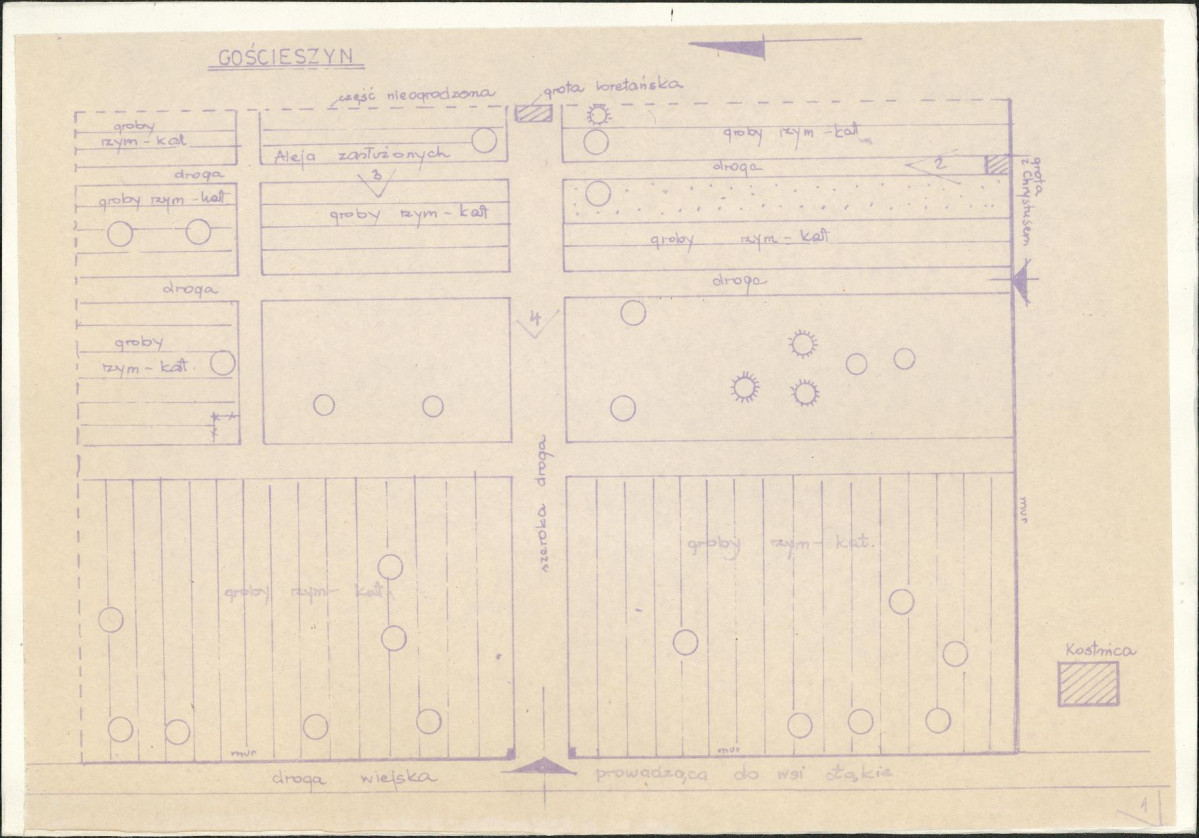 GOŚCIESZYN
część nieogrodzona
grota loretańska
groby
rzym-kat
Aleja zasłużonych
groby rzym-kat
droga
droga
2
grota
z Chrystusem
groby rzym-kat.
3
groby rzym-kat
groby rzym-kat
droga
droga
4
groby
rzym-kat.
szeroka droga
mur
groby rzym-kat.
groby rzym-kat.
Kostnica
mur
mur
droga wiejska
prowadząca do wsi Łąkie
1